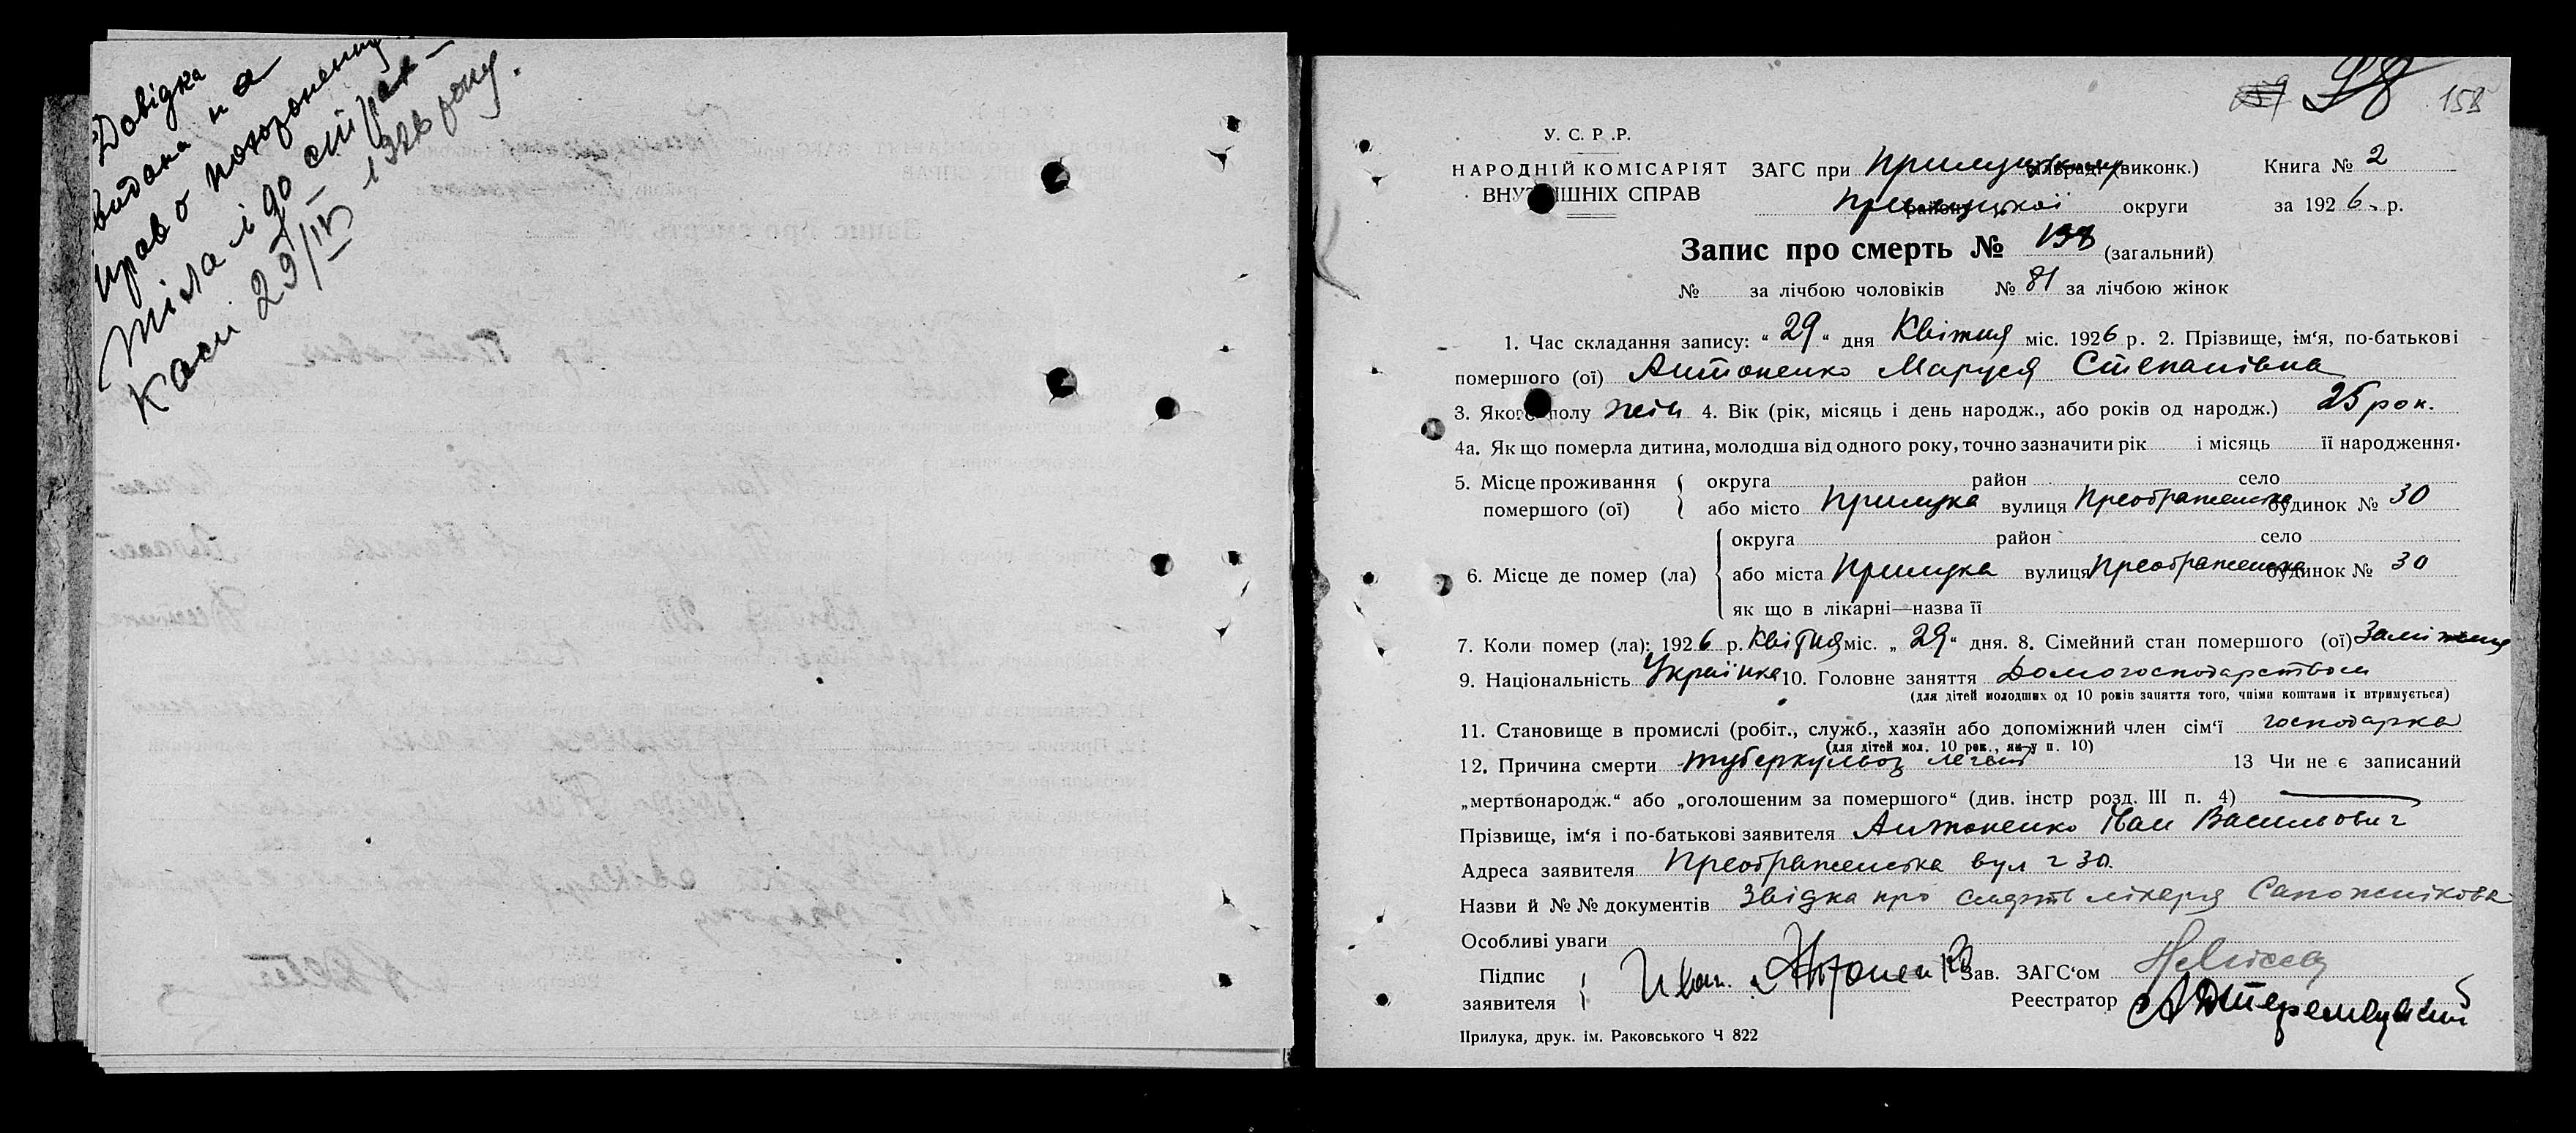 Довідка
видана на
право похоронення
тіла і до страх-
каси 29/IV 1926 року.
158
У. С. Р. Р.
НАРОДНІЙ КОМІСАРІЯТ
ВНУТРІШНІХ СПРАВ
ЗАГС при Прилуцькому (виконк.)
Прилуцької округи
Книга № 2
за 1926 р.
Запис про смерть № 158 (загальний)
№ за лічбою чоловіків № 81 за лічбою жінок
1. Час складання запису: “ 29 “ дня Квітня міс. 1926 р. 2. Прізвище, ім‘я, по-батькові
помершого (ої) Антоненко Маруся Степанівна
3. Якого полу жін 4. Вік (рік, місяць і день народж., або років од народж.) 25 рок.
4а. Як що померла дитина, молодша від одного року, точно зазначити рік і місяць її народження.
5. Місце проживання округа район село
помершого (ої) або місто Прилука вулиця Преображенська будинок № 30
округа район село
6. Місце де помер (ла) або міста Прилука вулиця Преображенська будинок № 30
як що в лікарні—назва її
7. Коли помер (ла): 1926 р. Квітня міс. „ 29 “ дня. 8. Сімейний стан помершого (ої) Заміжня
9. Національність Українка 10. Головне заняття Домогосподарством
(для дітей молодших од 10 років заняття того, чиїми коштами їх втримується)
11. Становище в промислі (робіт., служб., хазяїн або допоміжний член сім‘ї господарка
(для дітей мол. 10 рок., як у п. 10)
12. Причина смерти туберкульоз легенів 13 Чи не є записаний
„мертвонародж.“ або „оголошеним за помершого“ (див. інстр розд. III п. 4) —
Прізвище, ім‘я і по-батькові заявителя Антоненко Іван Васильович
Адреса заявителя Преображенська вул ч 30.
Назви й №№ документів Звідка про смерть лікаря Сапожнікова
Особливі уваги
Підпис
заявителя Иван Антоненко
Зав. ЗАГС‘ом
Реестратор
Прилука, друк. ім. Раковського Ч 822